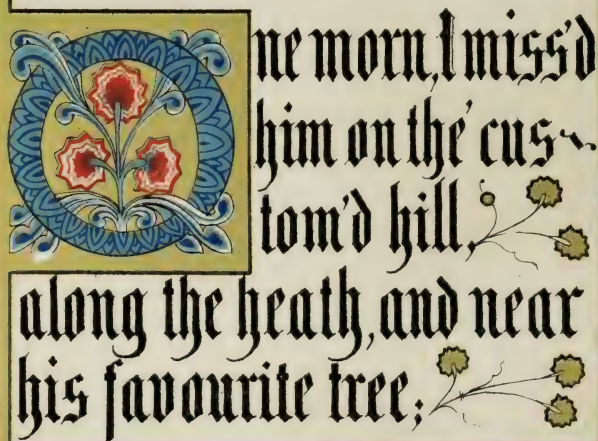 One morn, I miss'd
him on the' cus~
tom'd hill,
along the heath, and near
his favourite tree;